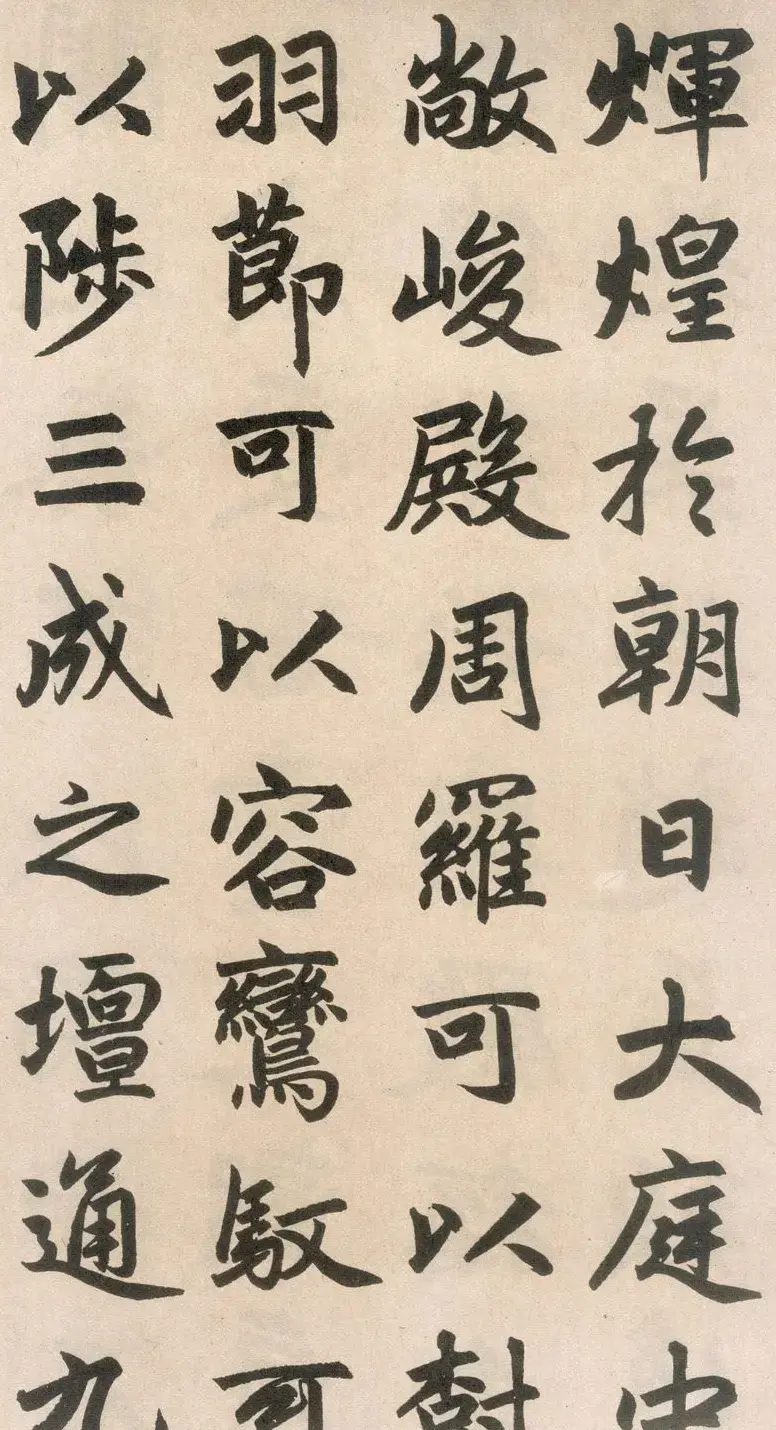 煇煌於朝日大庭中
敞峻殿周羅可以樹
羽節可以容鸞馭可
以陟三成之壇通九